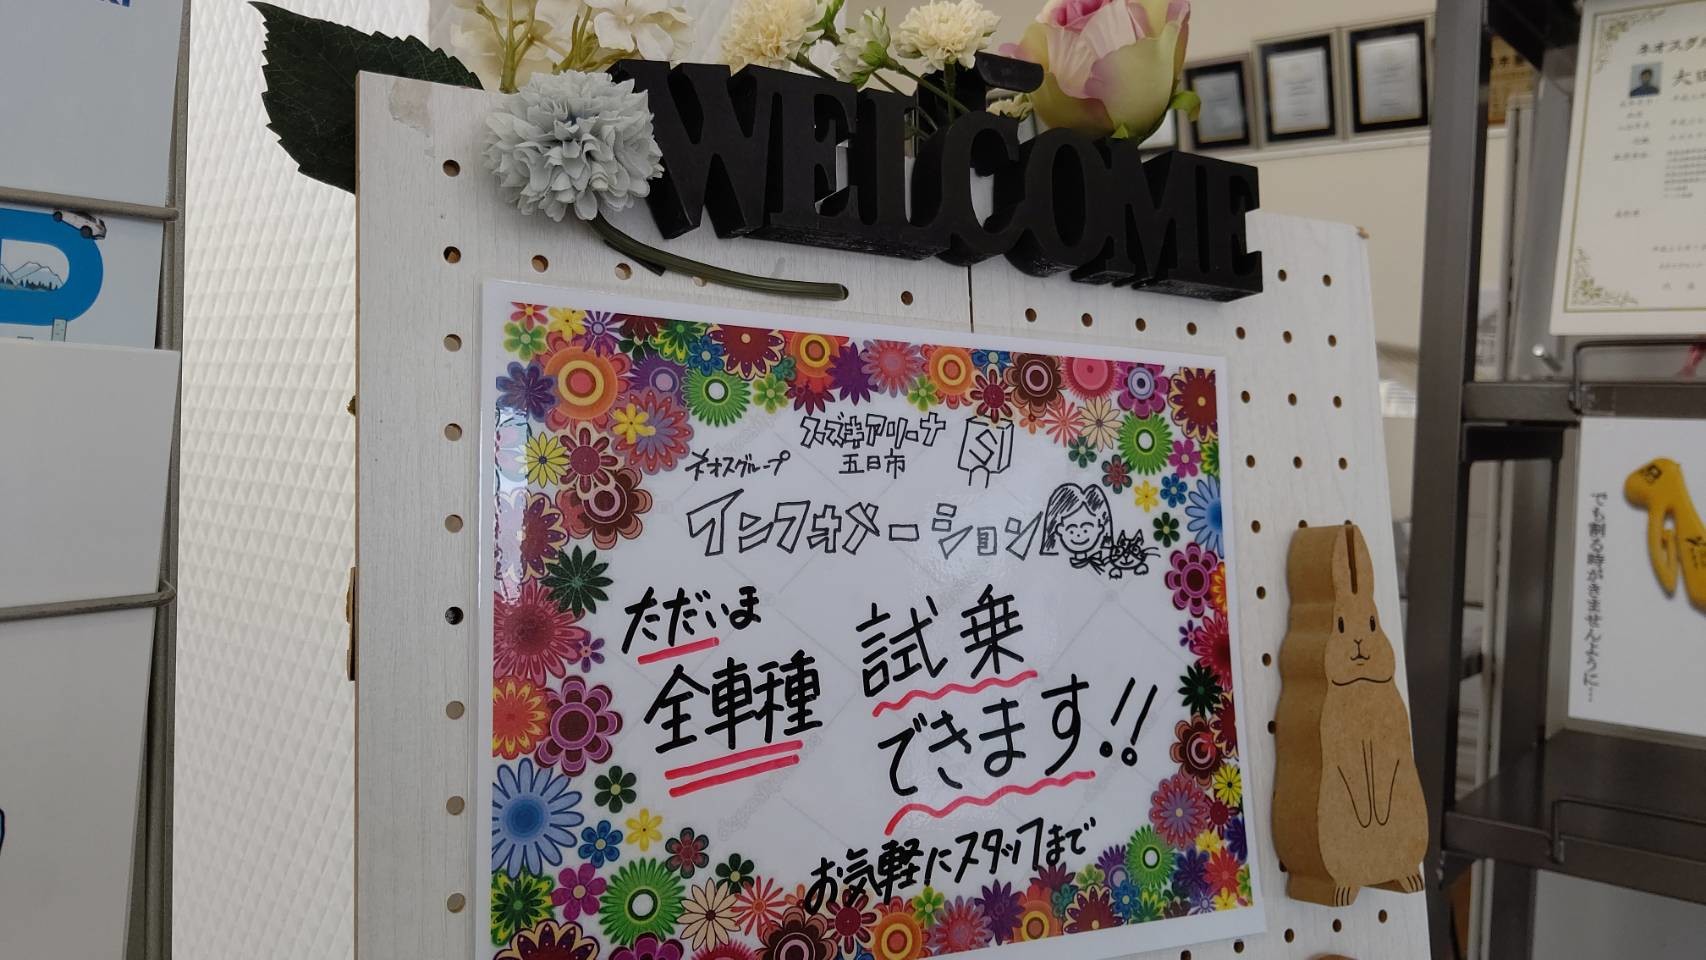 WELCOME
スズキアリーナ
ネオスグループ
五日市
SJ
インフォメーション
ただいま
全車種
試乗
できます!!
お気軽にスタッフまで
でも割る時がきませんように…